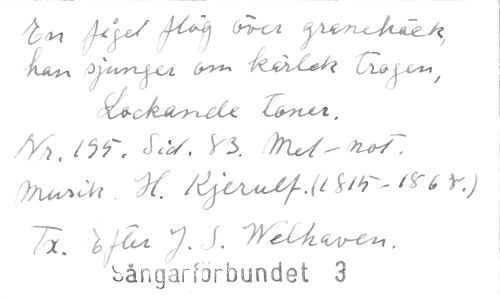 En fågel flög över granehäck,
han sjunger om kärlek trogen,
Lockande toner.
Nr. 195. Sid. 83. Mel-not.
Musik. H. Kjerulf. (1815-1868.)
Tx. Efter J. S. Welhaven.
Sångarförbundet 3